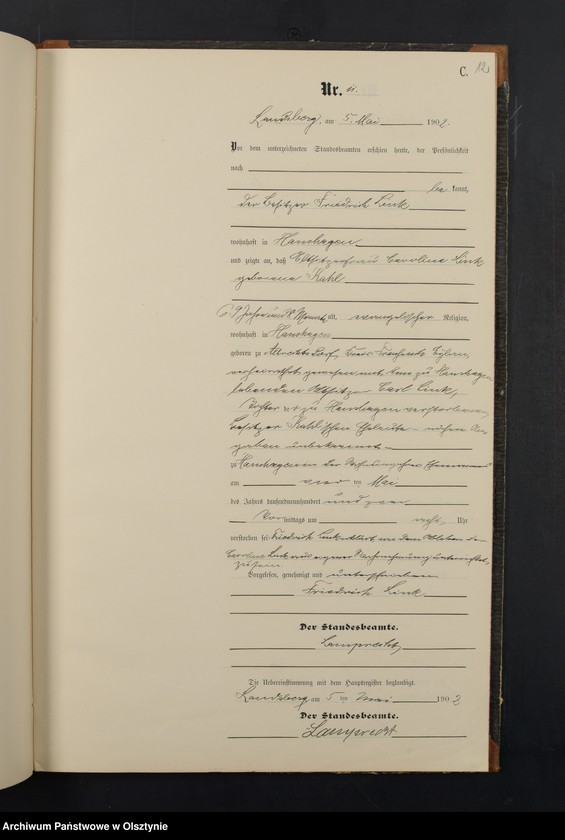 C. 12
Nr. 11.
Landsberg, am 5. Mai 1902.
Vor dem unterzeichneten Standesbeamten erschien heute, der Persönlichkeit
nach
bekannt,
der Besitzer Friedrich Link
wohnhaft in Hanshagen
und zeigte an, daß Altsitzerfrau Caroline Link
geborene Kahl
69 Jahre und 8 Monate alt, evangelischer Religion,
wohnhaft in Hanshagen
geboren zu Albrechtsdorf, Kreis Preußisch Eylau,
verheirathet gewesen mit dem zu Hanshagen
lebenden Altsitzer Carl Link,
Tochter der zu Hanshagen verstorbenen
Besitzer Kahl'schen Eheleute
unbekannt
zu Hanshagen in der Wohnung
am vier ten Mai
des Jahres tausendneunhundert und zwei
Vormittags um acht Uhr
verstorben sei. Friedrich Link erklärt, von dem Ableben der
Caroline Link aus eigener unterrichtet
zu sein.
Vorgelesen, genehmigt und unterschrieben
Friedrich Link
Der Standesbeamte.
Lamprecht
Die Uebereinstimmung mit dem Hauptregister beglaubigt.
Landsberg am 5 ten Mai 1902
Der Standesbeamte.
Lamprecht
Archiwum Państwowe w Olsztynie